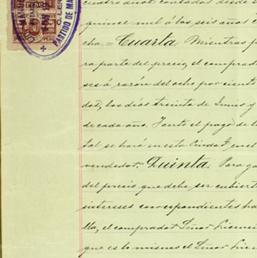 cuatro años contados desde
quince mil á los seis años c
cho = Cuarta. Mientras p
ra parte del precio, el comprad
sés á razón del ocho por cient
dad, los días treinta de Junio y
de cada año. Tanto el pago de
tal se hará en esta Ciudad, en el
vendedor. Quinta. Para ga
del precio que debe ser cubiert
intereses correspondientes ha
lla, el comprador Señor Licenci
que es lo mismo el Señor Licen
PARTIDO DE MA